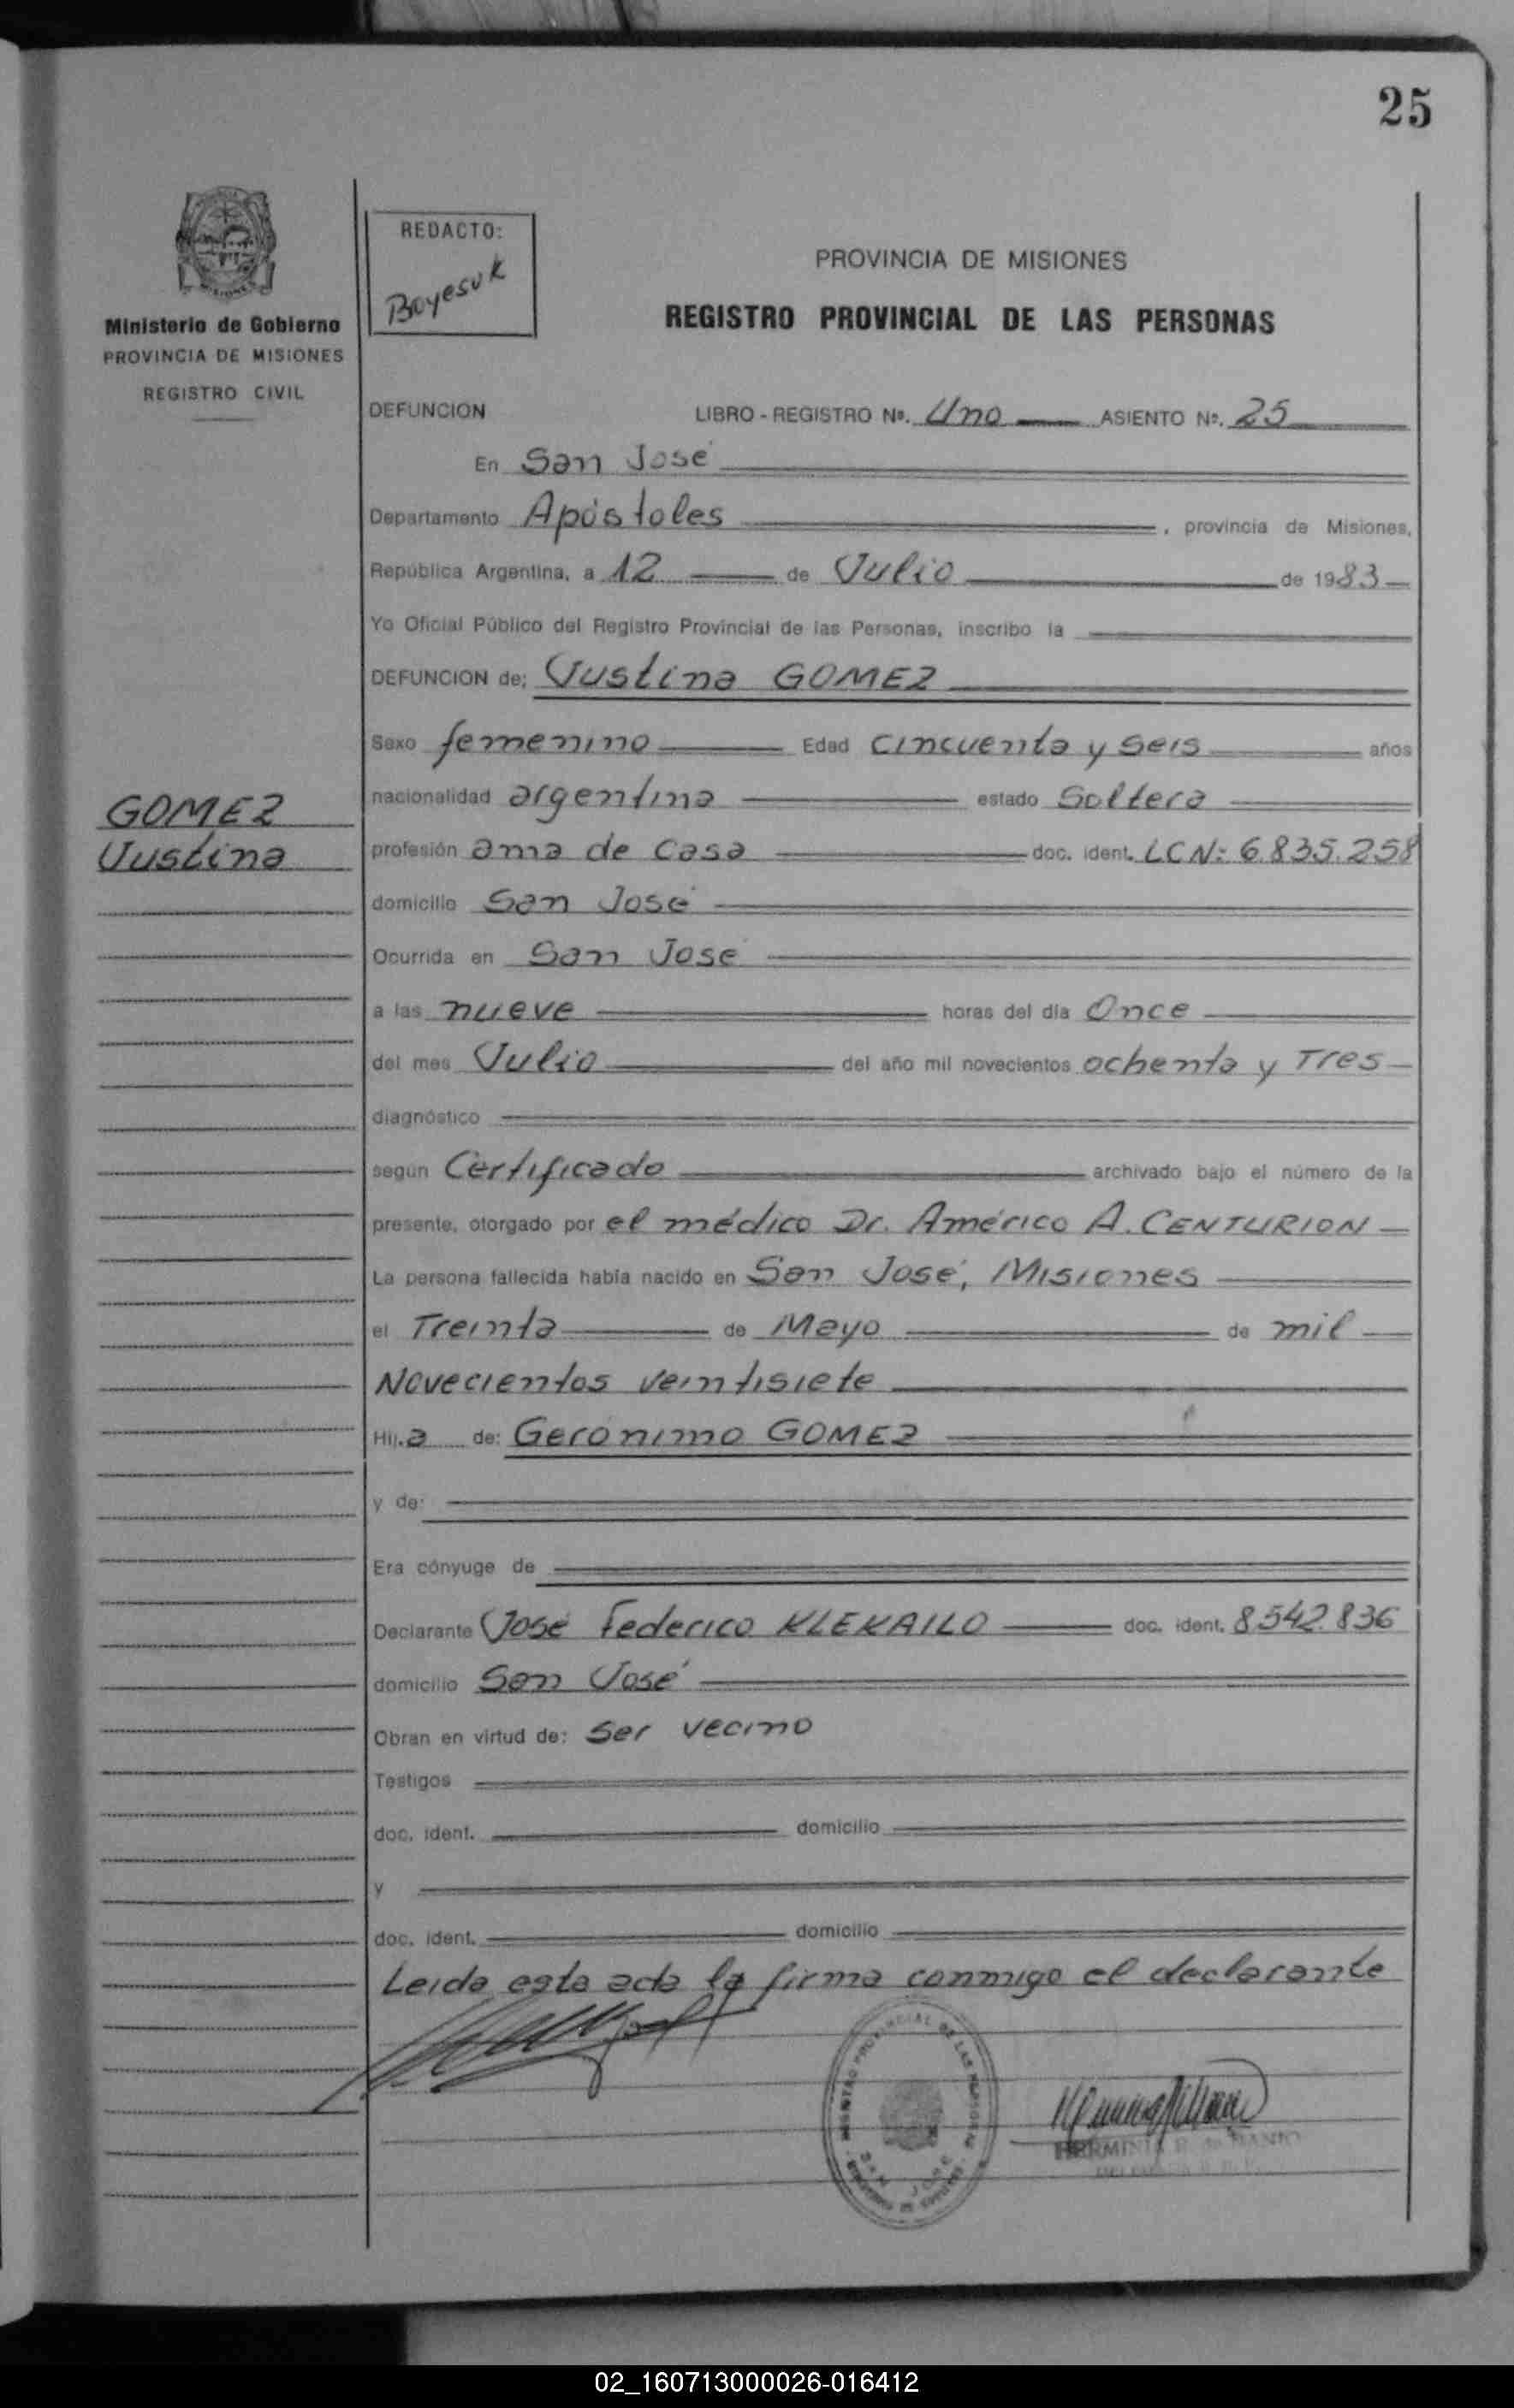 25
REDACTO:
Boyesuk
Ministerio de Gobierno
PROVINCIA DE MISIONES
REGISTRO CIVIL
PROVINCIA DE MISIONES
REGISTRO PROVINCIAL DE LAS PERSONAS
DEFUNCION LIBRO - REGISTRO Nº. Uno ASIENTO Nº. 25
En San José
Departamento Apóstoles , provincia de Misiones,
República Argentina, a 12 de Julio de 1983
Yo Oficial Público del Registro Provincial de las Personas, inscribo la
DEFUNCION de: Justina GOMEZ
Sexo femenino Edad cincuenta y seis años
GOMEZ
Justina
nacionalidad argentina estado Soltera
profesión ama de casa doc. ident. LCN: 6.835.258
domicilio San José
Ocurrida en San José
a las nueve horas del día Once
del mes Julio del año mil novecientos ochenta y Tres
diagnóstico
según Certificado archivado bajo el número de la
presente, otorgado por el médico Dr. Américo A. CENTURION
La persona fallecida había nacido en San José, Misiones
el Treinta de Mayo de mil
Novecientos veintisiete
Hij.a de: Gerónimo GOMEZ
y de:
Era cónyuge de
Declarante José Federico KLEKAILO doc. ident. 8.542.836
domicilio San José
Obran en virtud de: Ser vecino
Testigos
doc. ident. domicilio
y
doc. ident. domicilio
Leida esta acta la firma conmigo el declarante
REGISTRO PROVINCIAL DE LAS PERSONAS
SAN JOSE
HERMINIA
02_160713000026-016412